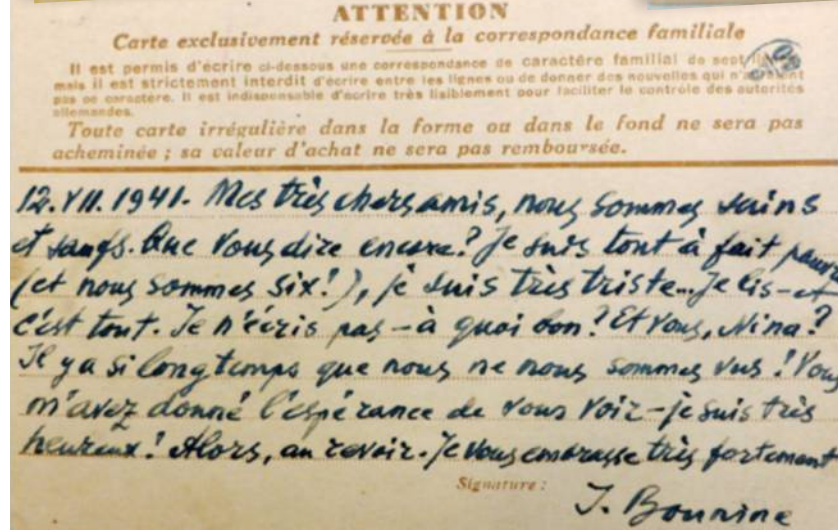 ATTENTION
Carte exclusivement réservée à la correspondance familiale
Il est permis d'écrire ci-dessous une correspondance de caractère familial de sept lignes
mais il est strictement interdit d'écrire entre les lignes ou de donner des nouvelles qui n'auraient
pas ce caractère. Il est indispensable d'écrire très lisiblement pour faciliter le contrôle des autorités
allemandes.
Toute carte irrégulière dans la forme ou dans le fond ne sera pas
acheminée ; sa valeur d'achat ne sera pas remboursée.
12.VII.1941. Mes très chers amis, nous sommes sains
et saufs. Que vous dire encore? Je suis tout à fait pauvre
(et nous sommes six!), je suis très triste... Je lis – et
c'est tout. Je n'écris pas – à quoi bon? Et vous, Nina?
Il y a si longtemps que nous ne nous sommes vus! Vous
m'avez donné l'espérance de vous voir – je suis très
heureux! Alors, au revoir. Je vous embrasse très fortement
Signature :
J. Bounine